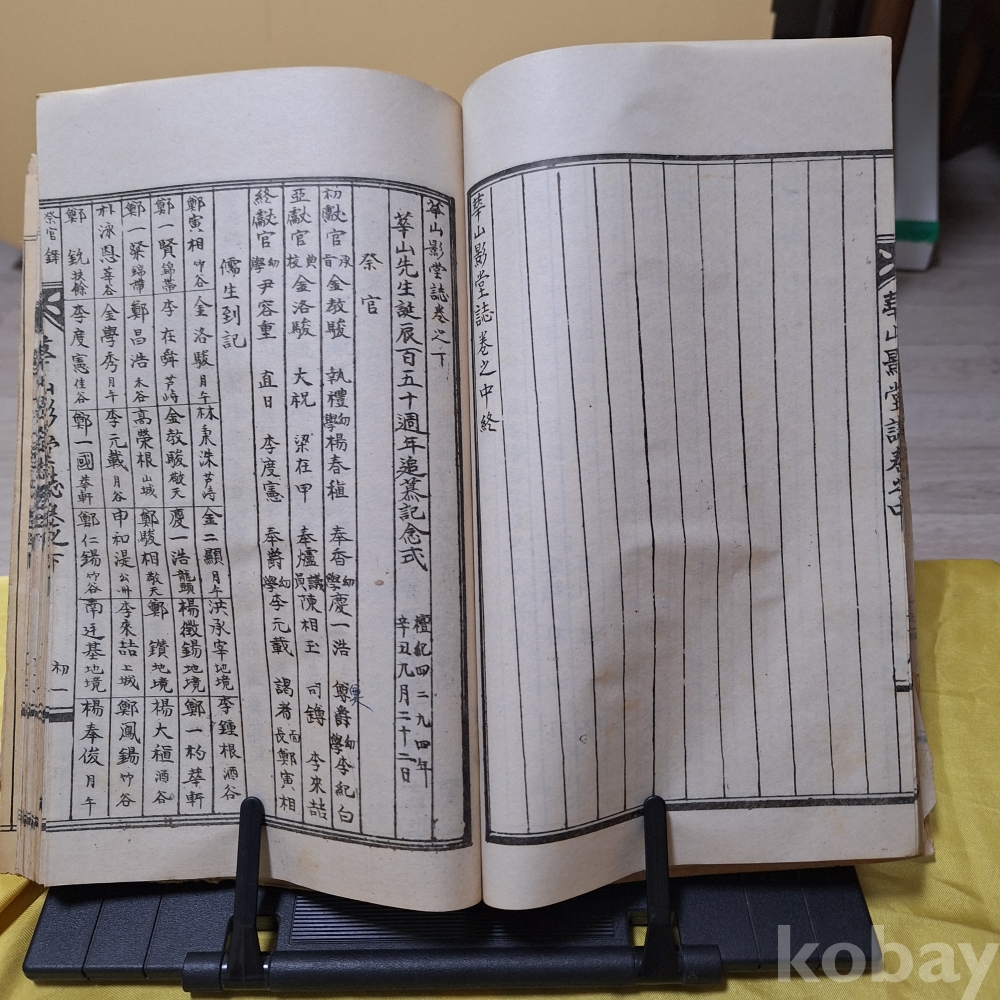 華山影堂誌卷之中
華山影堂誌卷之中終
華山影堂誌卷之下
華山先生誕辰百五十週年追慕記念式 檀紀四二九四年
辛丑九月二十二日
祭官
初獻官 金敎駿 執禮 幼學 楊春稙 奉香 幼學 慶一浩 奠爵 幼學 李紀白
亞獻官 典校 金洛駿 大祝 梁在甲 奉爐 議員 陳相玉 司鐏 李來喆
終獻官 幼學 尹容重 直日 李度憲 奉爵 幼學 李元載 謁者 面長 鄭寅相
儒生到記
鄭寅相 竹谷 金洛駿 月午 林秉洙 芦峙 金二顯 月午 洪承宰 地境 李鍾根 酒谷
鄭一賢 錦帶 李在舜 芦峙 金敎駿 敬天 慶一浩 龍頭 楊徵錫 地境 鄭一杓 華軒
鄭一榮 錦帶 鄭昌浩 木谷 高榮根 山城 鄭駿相 敬天 鄭鑽 地境 楊大稙 酒谷
朴泳恩 華谷 金學秀 月午 李元載 月谷 申和湜 公州 李來喆 上城 鄭鳳錫 竹谷
鄭鈗 扶餘 李度憲 佳谷 鄭一國 華軒 鄭仁錫 竹谷 南廷基 地境 楊奉俊 月午
祭官錄
華山影堂誌卷之下
初一
kobay